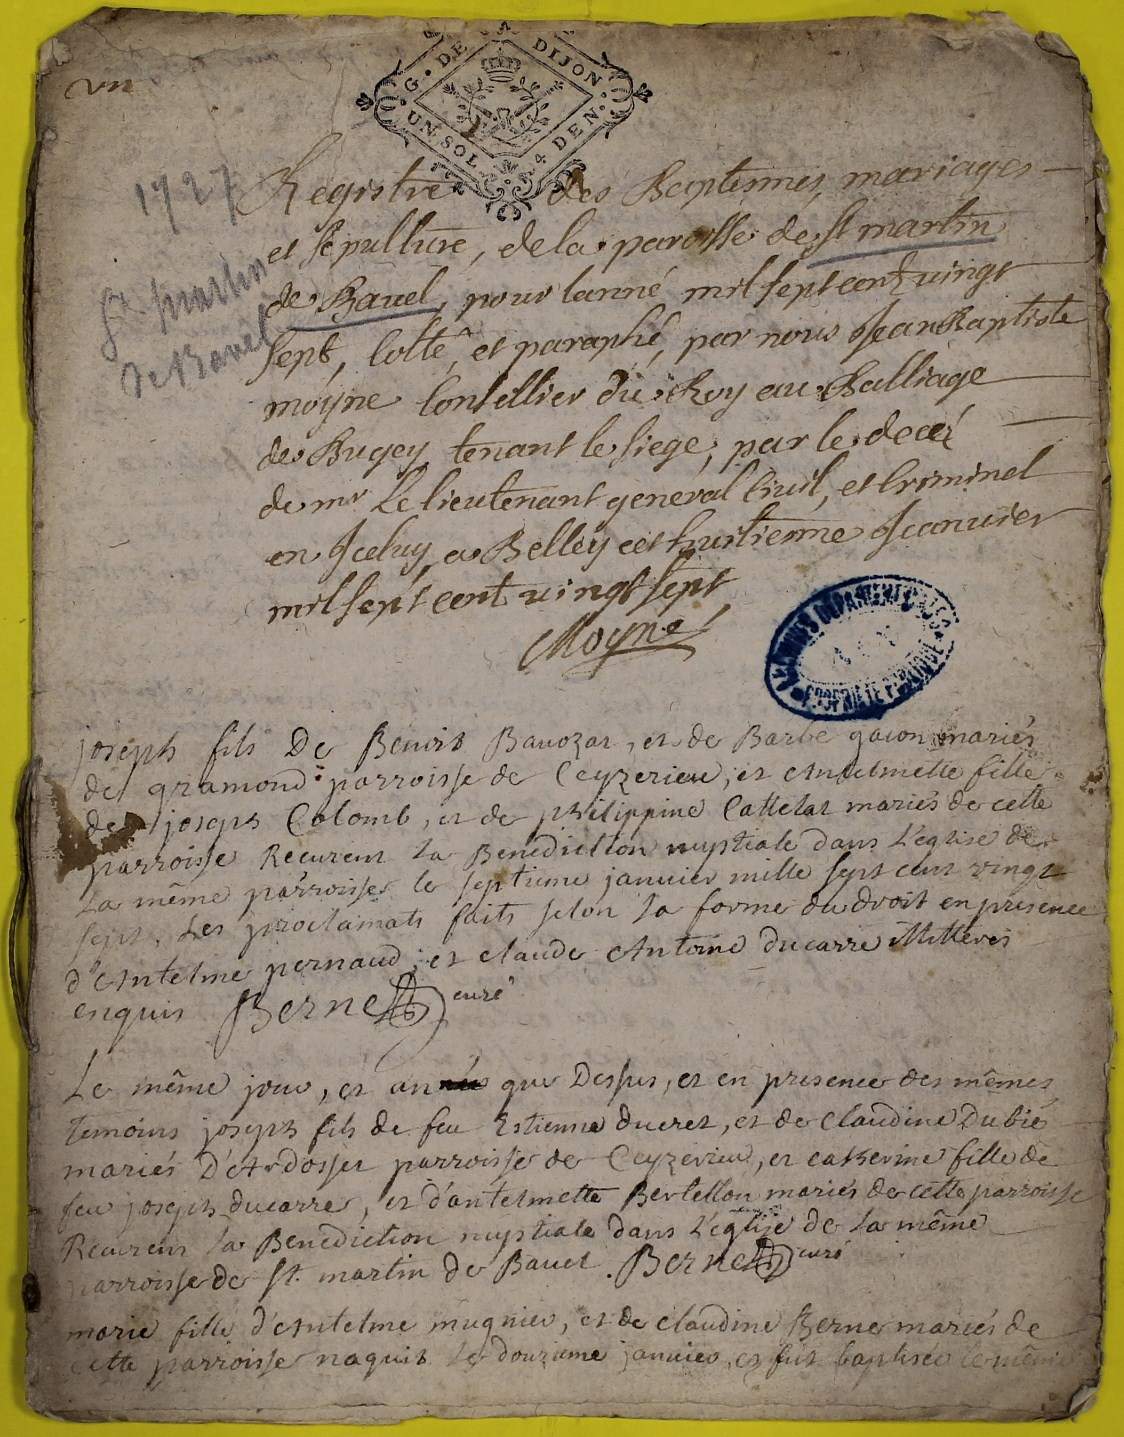 vn
G. DE DIJON
UN SOL. 4 DEN.
1727
St martin
de Bavel
Registre des Baptemes, mariages
et sepulture, de la paroisse de St martin
de Bavel, pour lanné mil sept cent vingt
sept, cotté, et paraphé, par nous Jean Baptiste
moyne Consellier du Roy au Balliage
de Bugey tenant le siege, par le decez
de mr Le lieutenant general Civil, et Criminel
en Iceluy, a Belley ce huitienne Jeanvier
mil sept cent vingt sept
Moyne
ARCHIVES DEPARTEMENTALES
PROPRIETE PUBLIQUE
joseph fils De Benoit Bavozat, et de Barbe gacon mariés
de gramond parroisse de Ceyzerieu, et Antelmette fille
de joseph Colomb, et de philippine Cattelat mariés de cette
parroisse Recurent la Benediction nuptiale dans L'eglise de
La même parroisse le septieme janvier mille sept cent vingt
sept. Les proclamats faits selon la forme du droit en presence
d'Antelme pernaud, et claude Antoine ducarre illitteres
enquis Bernet curé
Le même jour, et an que Dessus, et en presence des mêmes
temoins joseph fils de feu Estienne ducret, et de Claudine Dubié
mariés D'Ardosset parroisse de Ceyzerieu, et catherine fille de
feu joseph ducarre, et d'antelmette Bertellon mariés de cette parroisse
Recurent la Benediction nuptiale dans L'eglise de la même
parroisse de St. martin de Bavel. Bernet curé
marie fille d'Antelme mugnier, et de claudine Berne mariés de
cette parroisse naquit Le douzieme janvier, et fut baptisée le même